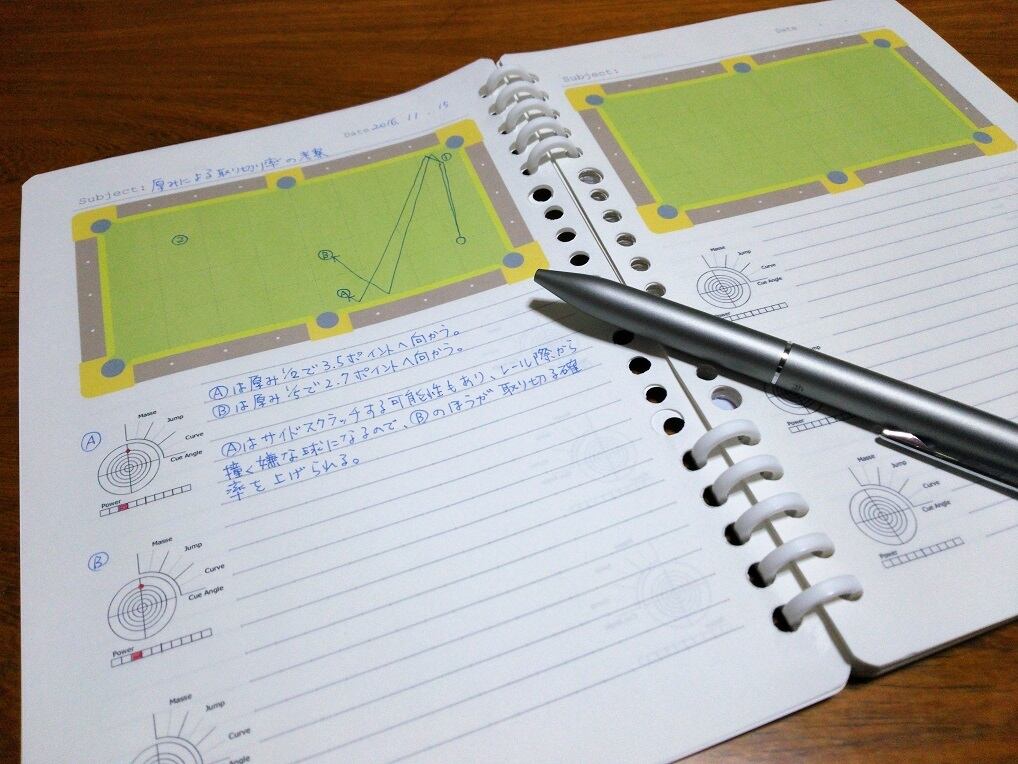 Date 2016. 11. 15
Subject: 厚みによる取り切り率の考察
①
②
Ⓑ
Ⓐ
Ⓐは厚み1/2で3.5ポイントへ向かう。
Ⓑは厚み1/5で2.7ポイントへ向かう。
Ⓐはサイドスクラッチする可能性もあり、レール際から
撞く嫌な球になるので、Ⓑのほうが取り切る確
率を上げられる。
Ⓐ
Masse
Jump
Curve
Cue Angle
Power
Ⓑ
Masse
Jump
Curve
Cue Angle
Power
Masse
Jump
Curve
Cue Angle
Subject:
Date
Masse
Jump
Curve
Cue Angle
Power
Masse
Jump
Curve
Cue Angle
Power